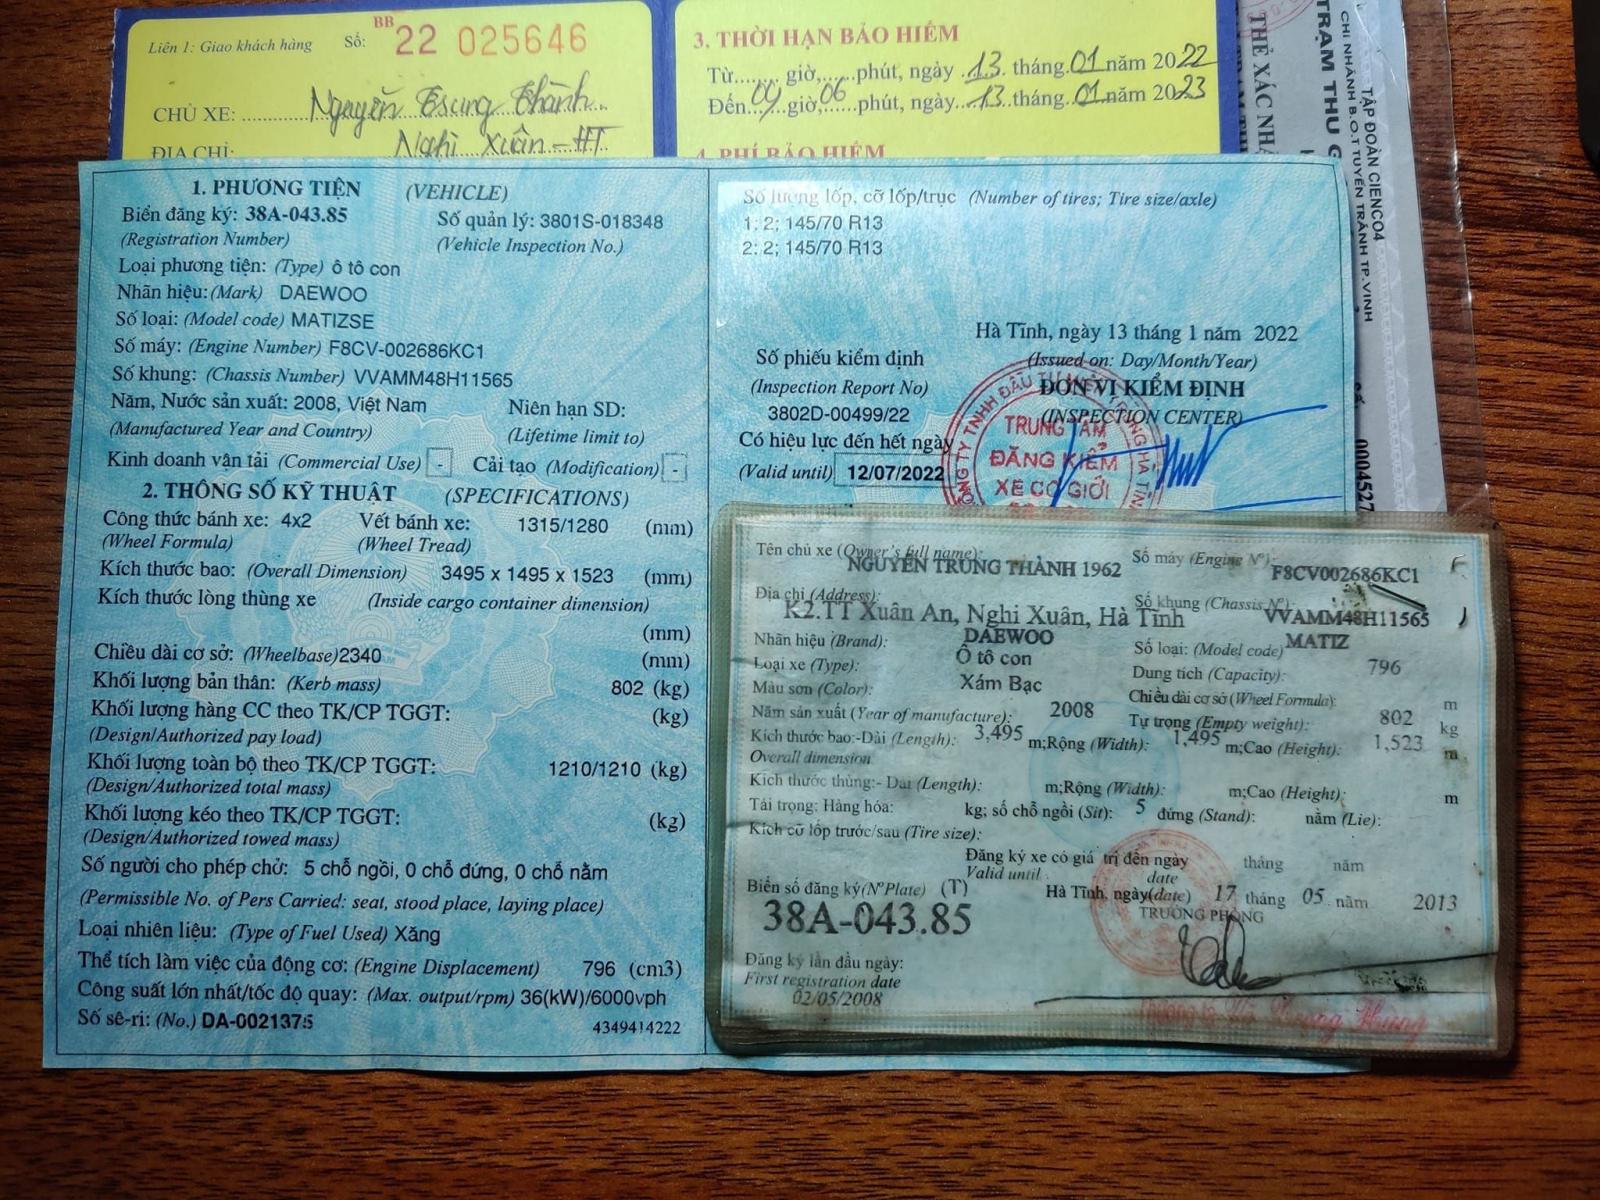 Liên 1: Giao khách hàng Số: BB 22 025646
CHỦ XE: Nguyễn Trung Thành
ĐỊA CHỈ: Nghi Xuân - HT
3. THỜI HẠN BẢO HIỂM
Từ........ giờ,......phút, ngày 13 tháng 01 năm 2022
Đến 09 giờ, 06 phút, ngày 13 tháng 01 năm 2023
4. PHÍ BẢO HIỂM
TẬP ĐOÀN CIENCO4
CHI NHÁNH B.O.T TUYẾN TRÁNH TP.VINH
TRẠM THU
THẺ XÁC
1. PHƯƠNG TIỆN (VEHICLE)
Biển đăng ký: 38A-043.85 Số quản lý: 3801S-018348
(Registration Number) (Vehicle Inspection No.)
Loại phương tiện: (Type) ô tô con
Nhãn hiệu: (Mark) DAEWOO
Số loại: (Model code) MATIZSE
Số máy: (Engine Number) F8CV-002686KC1
Số khung: (Chassis Number) VVAMM48H11565
Năm, Nước sản xuất: 2008, Việt Nam Niên hạn SD:
(Manufactured Year and Country) (Lifetime limit to)
Kinh doanh vận tải (Commercial Use) - Cải tạo (Modification) -
2. THÔNG SỐ KỸ THUẬT (SPECIFICATIONS)
Công thức bánh xe: 4x2 Vết bánh xe: 1315/1280 (mm)
(Wheel Formula) (Wheel Tread)
Kích thước bao: (Overall Dimension) 3495 x 1495 x 1523 (mm)
Kích thước lòng thùng xe (Inside cargo container dimension)
(mm)
Chiều dài cơ sở: (Wheelbase) 2340 (mm)
Khối lượng bản thân: (Kerb mass) 802 (kg)
Khối lượng hàng CC theo TK/CP TGGT: (kg)
(Design/Authorized pay load)
Khối lượng toàn bộ theo TK/CP TGGT: 1210/1210 (kg)
(Design/Authorized total mass)
Khối lượng kéo theo TK/CP TGGT: (kg)
(Design/Authorized towed mass)
Số người cho phép chở: 5 chỗ ngồi, 0 chỗ đứng, 0 chỗ nằm
(Permissible No. of Pers Carried: seat, stood place, laying place)
Loại nhiên liệu: (Type of Fuel Used) Xăng
Thể tích làm việc của động cơ: (Engine Displacement) 796 (cm3)
Công suất lớn nhất/tốc độ quay: (Max. output/rpm) 36(kW)/6000vph
Số sê-ri: (No.) DA-0021375 4349414222
Số lượng lốp, cỡ lốp/trục (Number of tires; Tire size/axle)
1: 2; 145/70 R13
2: 2; 145/70 R13
Hà Tĩnh, ngày 13 tháng 1 năm 2022
Số phiếu kiểm định (Issued on: Day/Month/Year)
(Inspection Report No) ĐƠN VỊ KIỂM ĐỊNH
3802D-00499/22 (INSPECTION CENTER)
Có hiệu lực đến hết ngày
(Valid until) 12/07/2022
TRUNG TÂM
ĐĂNG KIỂM
XE CƠ GIỚI
Tên chủ xe (Owner's full name): NGUYỄN TRUNG THÀNH 1962
Số máy (Engine Nº): F8CV002686KC1
Địa chỉ (Address): K2.TT Xuân An, Nghi Xuân, Hà Tĩnh
Số khung (Chassis Nº): VVAMM48H11565
Nhãn hiệu (Brand): DAEWOO Số loại: (Model code) MATIZ
Loại xe (Type): Ô tô con Dung tích (Capacity): 796
Màu sơn (Color): Xám Bạc Chiều dài cơ sở (Wheel Formula): m
Năm sản xuất (Year of manufacture): 2008 Tự trọng (Empty weight): 802 kg
Kích thước bao:-Dài (Length): 3,495 m;Rộng (Width): 1,495 m;Cao (Height): 1,523 m
Overall dimension
Kích thước thùng:- Dài (Length): m;Rộng (Width): m;Cao (Height): m
Tải trọng: Hàng hóa: kg; số chỗ ngồi (Sit): 5 đứng (Stand): nằm (Lie):
Kích cỡ lốp trước/sau (Tire size):
Đăng ký xe có giá trị đến ngày tháng năm
Valid until date
Biển số đăng ký(NºPlate) (T) Hà Tĩnh, ngày(date) 17 tháng 05 năm 2013
38A-043.85 TRƯỞNG PHÒNG
Đăng ký lần đầu ngày:
First registration date
02/05/2008